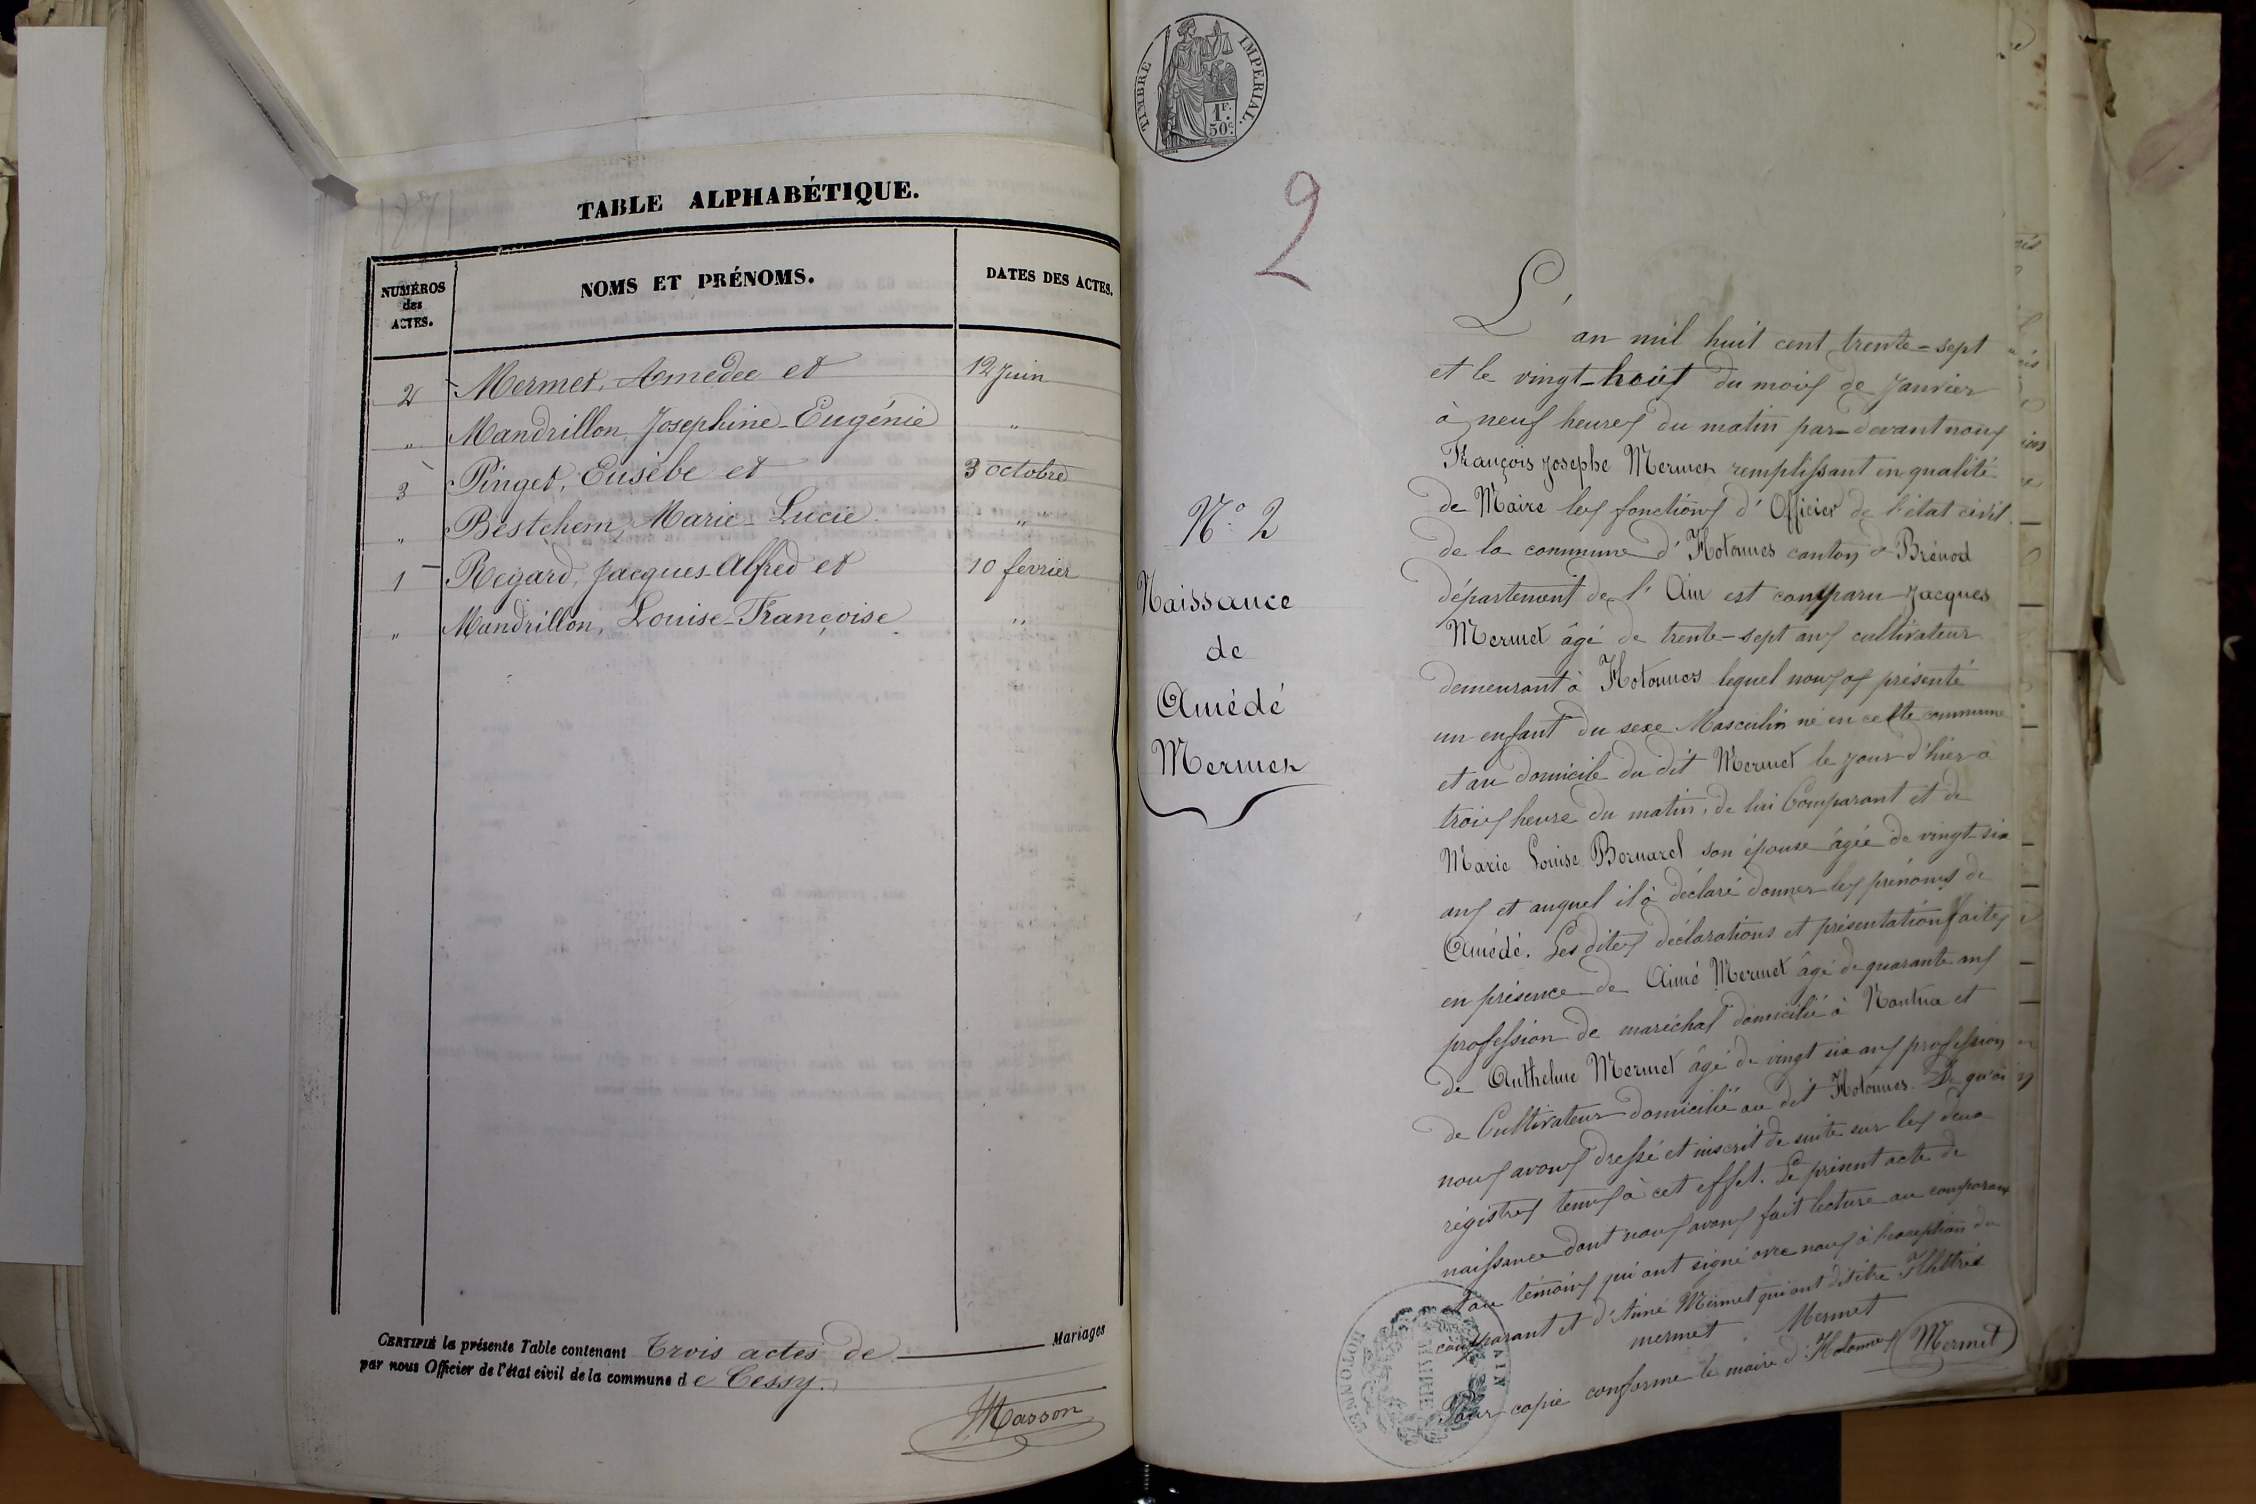 TABLE ALPHABÉTIQUE.
NUMÉROS des ACTES.
NOMS ET PRÉNOMS.
DATES DES ACTES.
2 Mermet, Amedée et 12 Juin
„ Mandrillon, Josephine-Eugénie „
3 Pinget, Eusèbe et 3 octobre
„ Bestchem, Marie-Lucie „
1 Regard, Jacques-Alfred et 10 février
„ Mandrillon, Louise-Françoise „
CERTIFIÉ la présente Table contenant Trois actes de Mariages
par nous Officier de l'état civil de la commune de Cessy.
Masson
TIMBRE IMPERIAL.
1F. 50c.
2
N.° 2
Naissance
de
Amédé
Mermet
L'an mil huit cent trente-sept
et le vingt-huit du mois de Janvier
à neuf heures du matin par-devant nous
François Josephe Mermet remplissant en qualité
de Maire les fonctions d'Officier de l'état civil
de la commune d'Hotonnes canton de Brénod
département de l'Ain est comparu Jacques
Mermet âgé de trente-sept ans cultivateur
demeurant à Hotonnes lequel nous a présenté
un enfant du sexe Masculin né en cette commune
et au domicile du dit Mermet le jour d'hier à
trois heure du matin, de lui Comparant et de
Marie Louise Bornarel son épouse âgée de vingt-six
ans et auquel il à déclaré donner les prénoms de
Amédé. Les dites déclarations et présentation faites
en présence de Aimé Mermet âgé de quarante ans
profession de maréchal domicilié à Nantua et
de Anthelme Mermet âgé de vingt six ans profession
de Cultivateur domicilié au dit Hotonnes. De quoi
nous avons dressé et inscrit de suite sur les deux
régistres tenus à cet effet. Le présent acte de
naissance dont nous avons fait lecture au comparant
et au témoins qui ont signé avec nous à l'exception du
comparant et d'Aimé Mermet qui ont dit être Illettrés
mermet Mermet
Pour copie conforme le maire d'Hotonnes Mermet
MAIRIE
HOTONNES
AIN